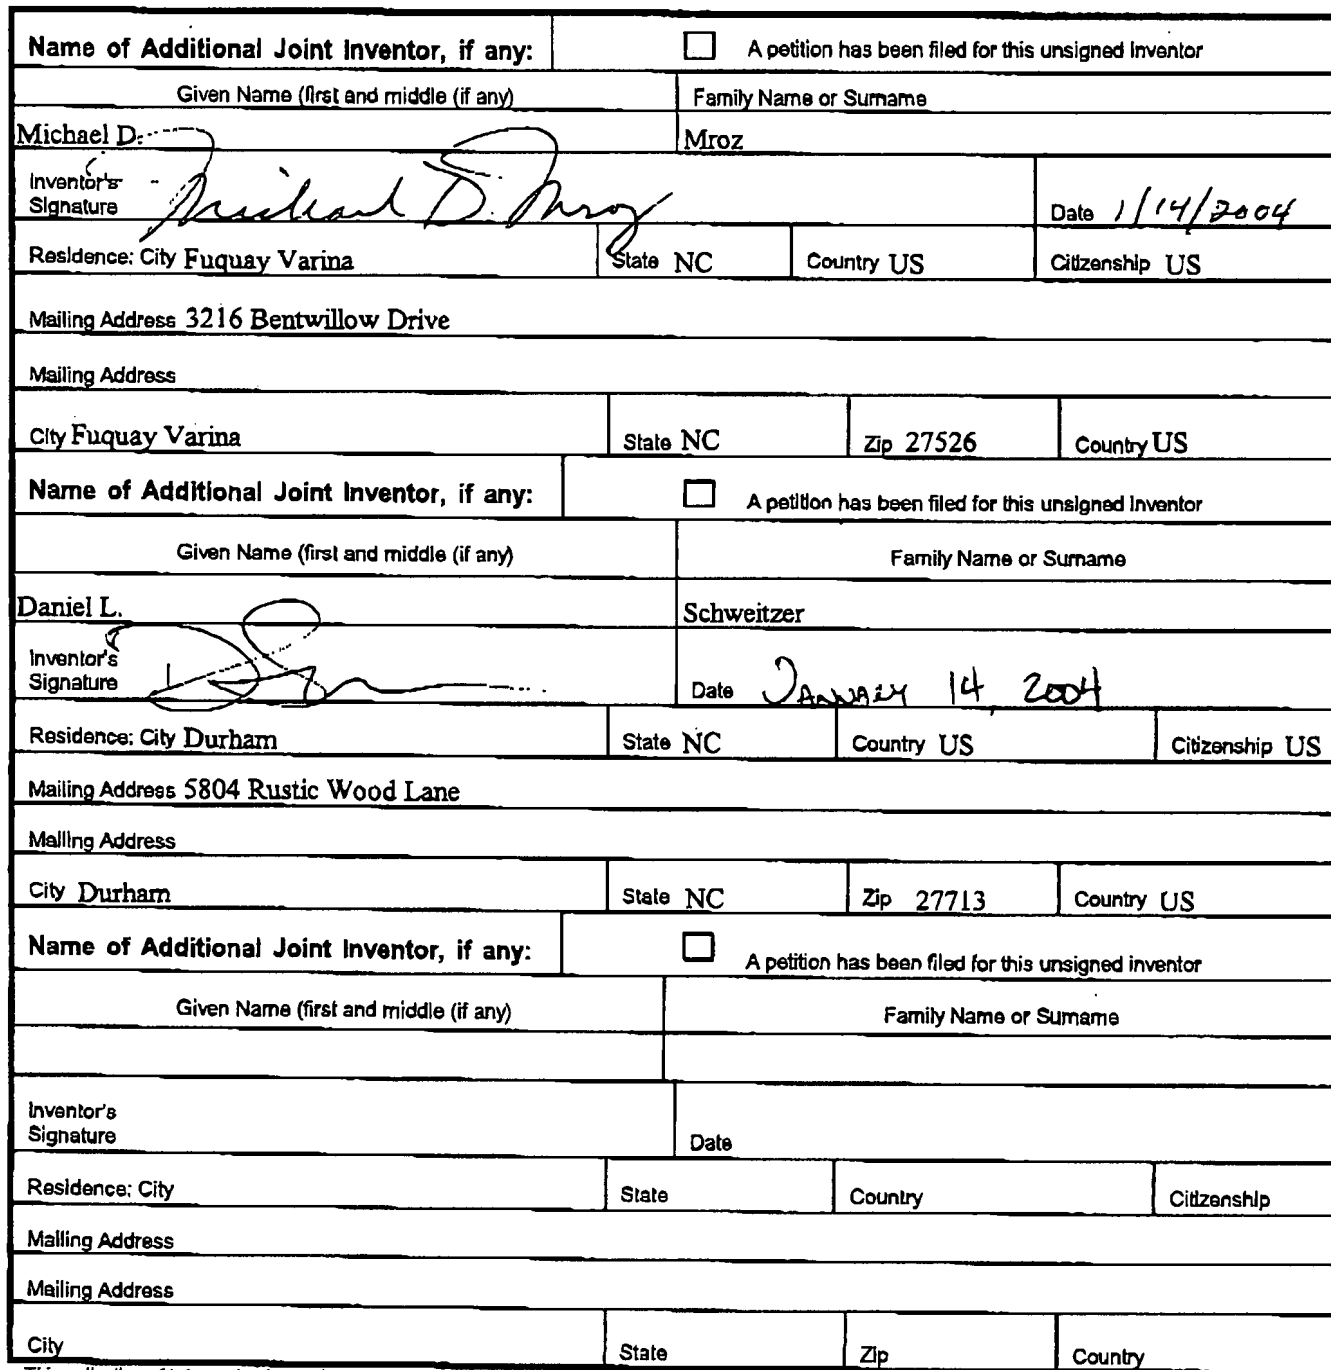 Name of Additional Joint Inventor, if any: A petition has been filed for this unsigned Inventor
Given Name (first and middle (if any) Family Name or Surname
Michael D. Mroz
Inventor's
Signature Michael D. Mroz Date 1/14/2004
Residence: City Fuquay Varina State NC Country US Citizenship US
Mailing Address 3216 Bentwillow Drive
Mailing Address
City Fuquay Varina State NC Zip 27526 Country US
Name of Additional Joint Inventor, if any: A petition has been filed for this unsigned Inventor
Given Name (first and middle (if any) Family Name or Surname
Daniel L. Schweitzer
Inventor's
Signature Date January 14, 2004
Residence: City Durham State NC Country US Citizenship US
Mailing Address 5804 Rustic Wood Lane
Mailing Address
City Durham State NC Zip 27713 Country US
Name of Additional Joint Inventor, if any: A petition has been filed for this unsigned inventor
Given Name (first and middle (if any) Family Name or Surname
Inventor's
Signature Date
Residence: City State Country Citizenship
Mailing Address
Mailing Address
City State Zip Country